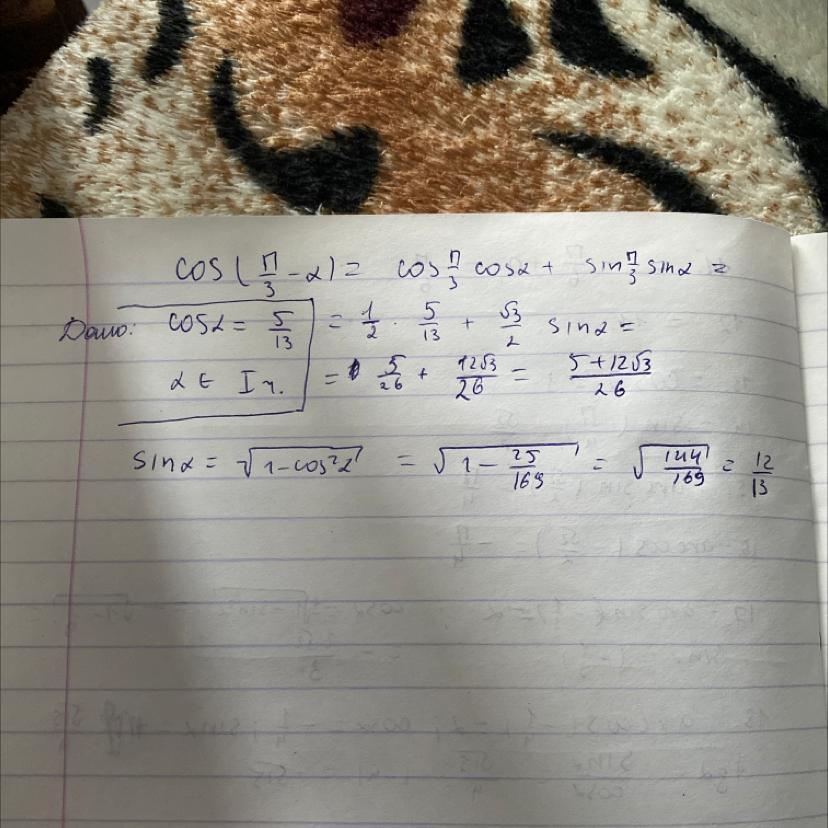 cos(π/3 - α) = cos π/3 cosα + sin π/3 sinα =
Дано: cosα = 5/13 = 1/2 · 5/13 + √3/2 sinα =
α ∈ I ч. = 5/26 + 12√3/26 = (5+12√3)/26
sinα = √(1-cos²α) = √(1 - 25/169) = √(144/169) = 12/13